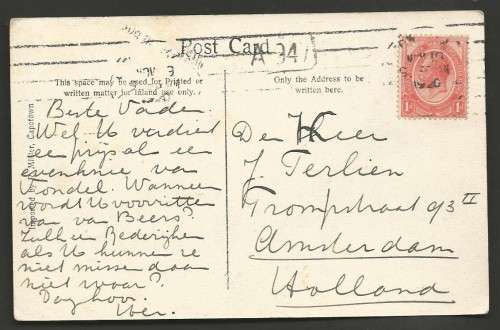 Post Card
A 947
This space may be used for Printed or
written matter for inland use only.
Only the Address to be
written here.
Capetown
Beste Vader
Wel, U verdient
een prijs al een
van
Vondel. Wanneer
wordt U voorzitter
van van Beers?
Zullen
als U kunnen ze
niet missen daar
niet waar?
Dag hoor.
Den Heer
J. Terlien
Trompstraat 93 II
Amsterdam
Holland